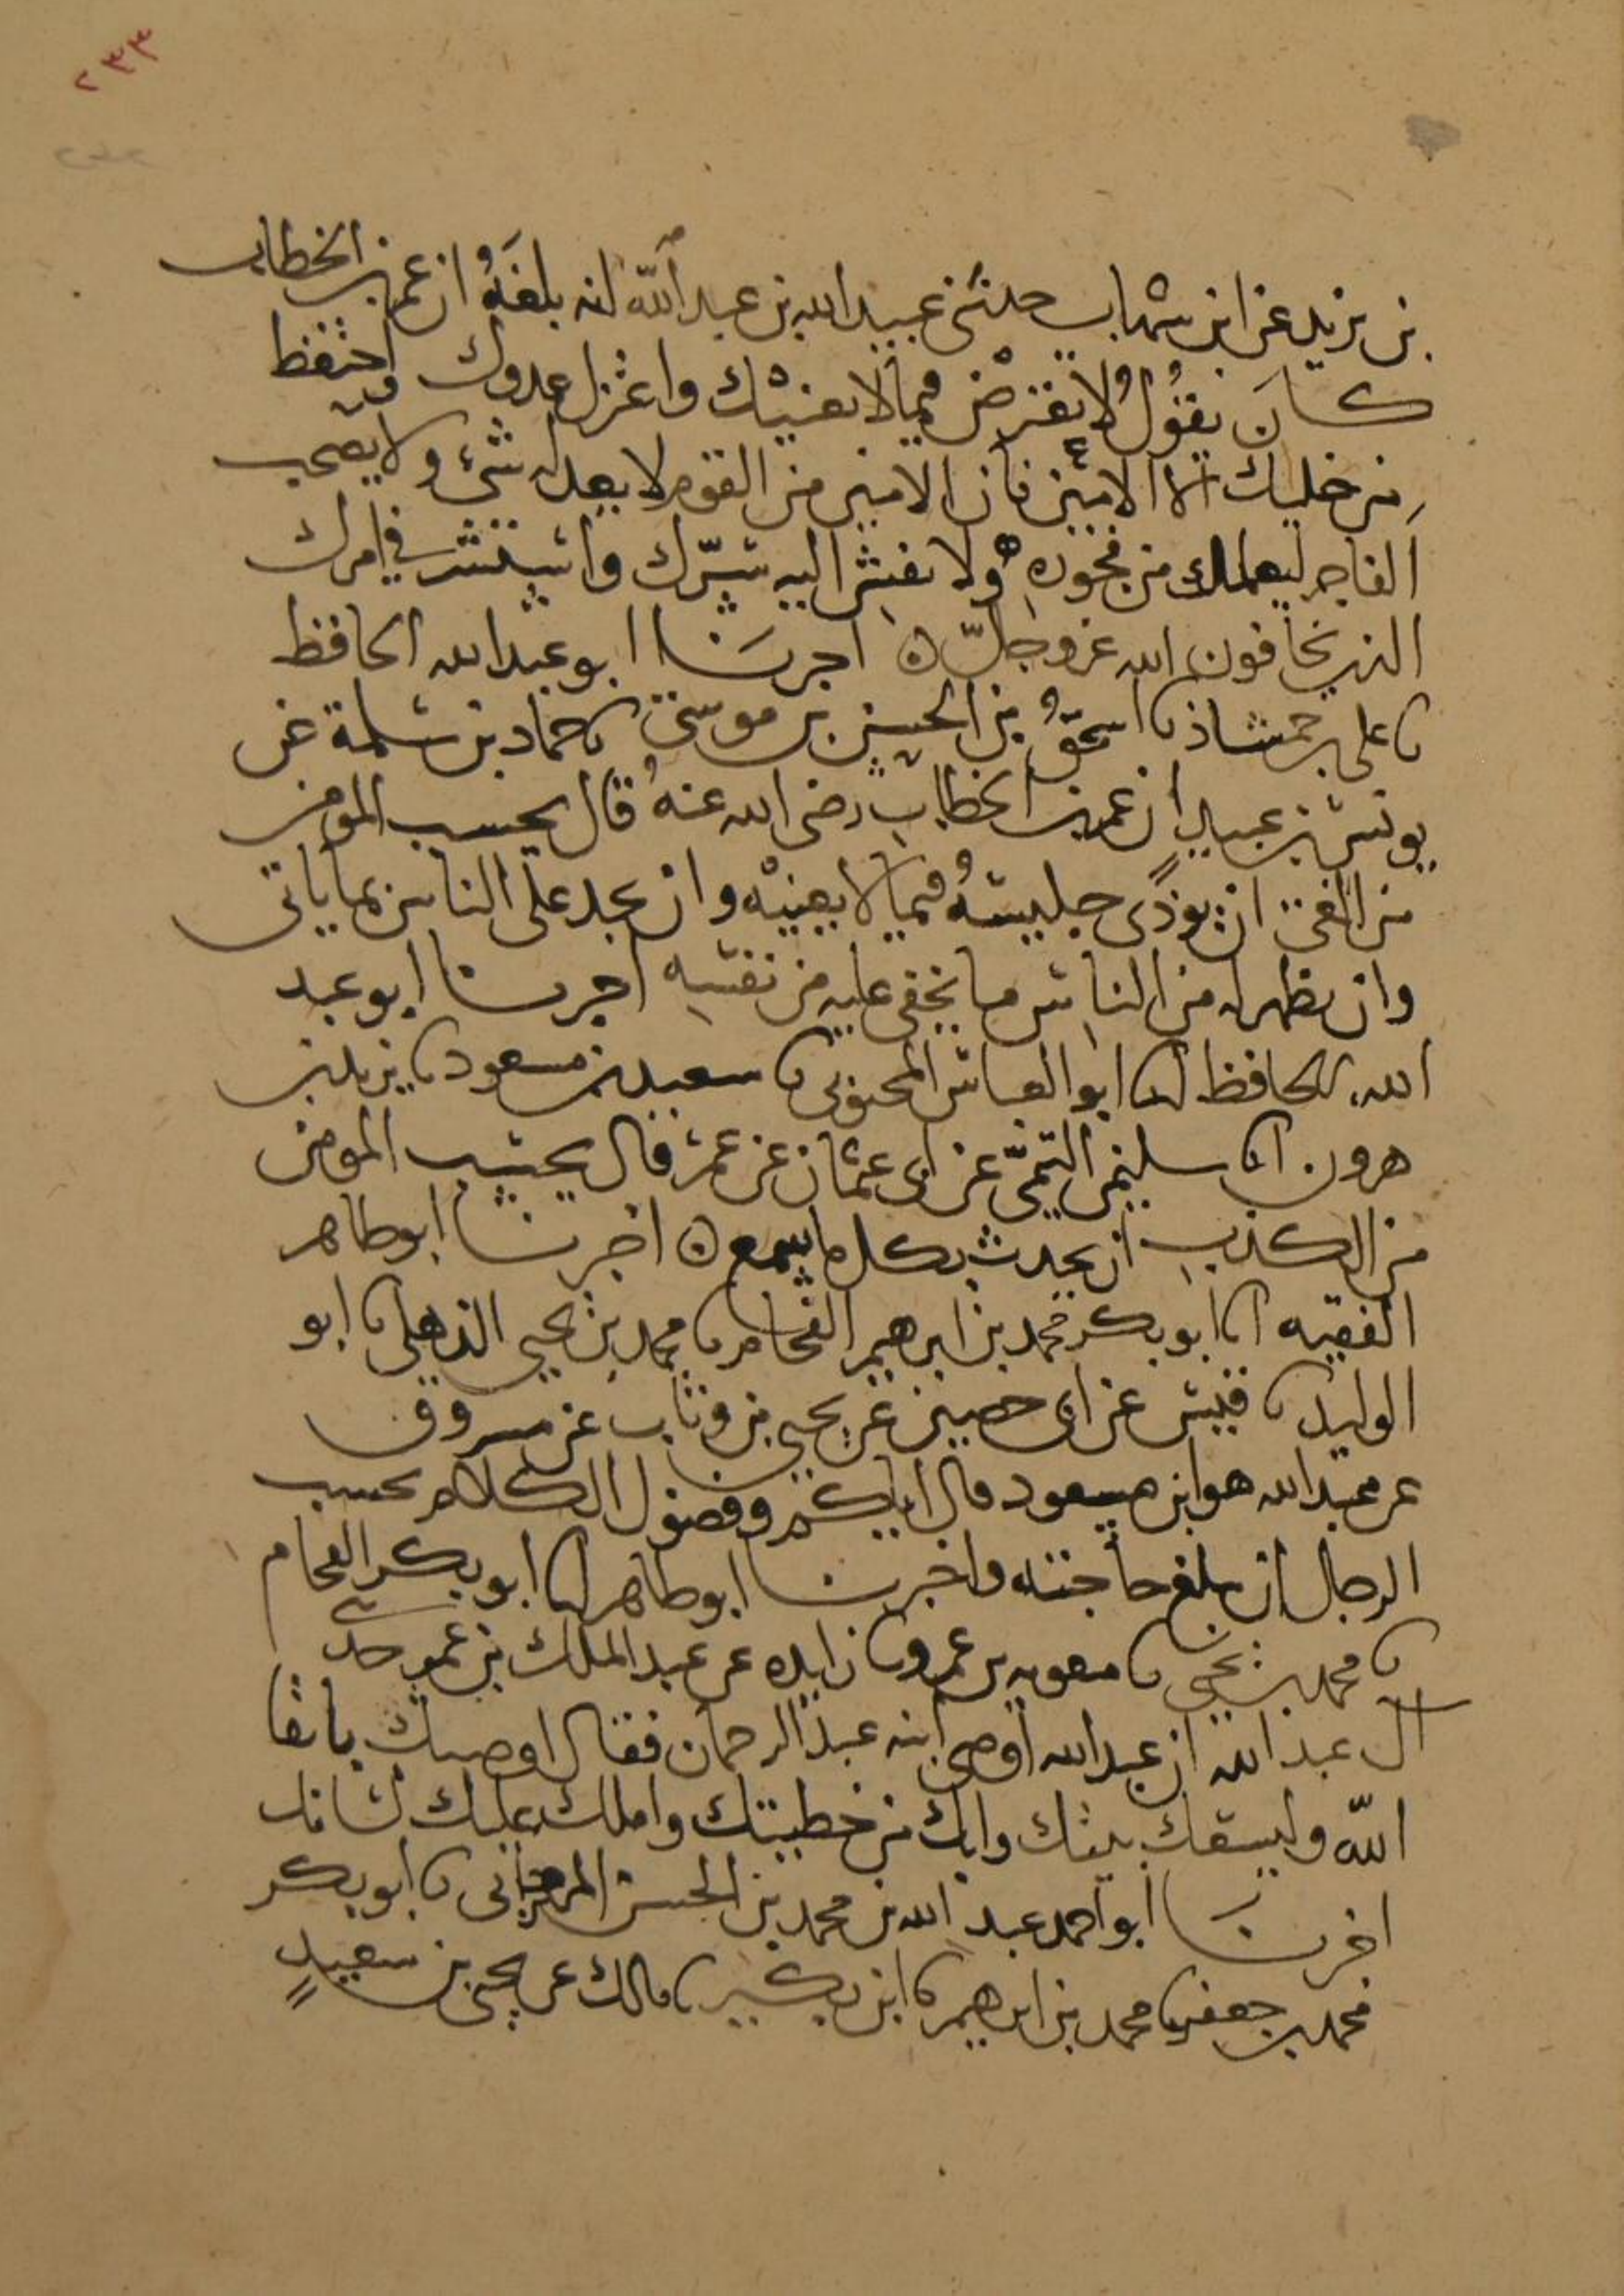 ٢٣٣
بن يزيد عن ابن شهاب حدثني عبيد الله بن عبد الله انه بلغه ان عمر بن الخطاب
كان يقول لا تعترض فيما لا يعنيك واعتزل عدوك واحتفظ
من خليلك الا الامين فان الامين من القوم لا يعدله شئ ولا تصحب
الفاجر ليعلمك من فجوره ولا تفش اليه سرك واستشر في امرك
الذين يخافون الله عز وجل ه اخبرنا ابو عبد الله الحافظ
نا علي بن حمشاذ نا اسحق بن الحسن بن موسى نا حماد بن سلمة عن
يونس بن عبيد ان عمر بن الخطاب رضي الله عنه قال بحسب المومن
من الغي ان يوذي جليسه فيما لا يعنيه وان يجد على الناس بما ياتي
وان يظهر له من الناس ما يخفى عليه من نفسه اخبرنا ابو عبد
الله الحافظ انا ابو العباس المحبوبي نا سعيد بن مسعود نا يزيد بن
هرون انا سليمن التيمي عن ابي عثمان عن عمر قال بحسب المومن
من الكذب ان يحدث بكل ما سمع ه اخبرنا ابو طاهر
الفقيه انا ابو بكر محمد بن ابرهيم الفحام نا محمد بن يحيى الذهلي نا ابو
الوليد نا قيس عن ابي حصين عن يحيى بن وثاب عن مسروق
عن عبد الله هو ابن مسعود قال اياكم وفضول الكلام بحسب
الرجل ان يبلغ حاجته واخبرنا ابو طاهر انا ابو بكر الفحام
نا محمد بن يحيى نا معويه بن عمرو نا زايده عن عبد الملك بن عمير حدثني
ال عبد الله ان عبد الله اوصى ابنه عبد الرحمان فقال اوصيك باتقا
الله وليسعك بيتك وابك من خطيتك واملك عليك لسانك
اخبرنا ابو احمد عبد الله بن محمد بن الحسن المهرجاني نا ابو بكر
محمد بن جعفر نا محمد بن ابرهيم نا ابن بكير نا مالك عن يحيى بن سعيد